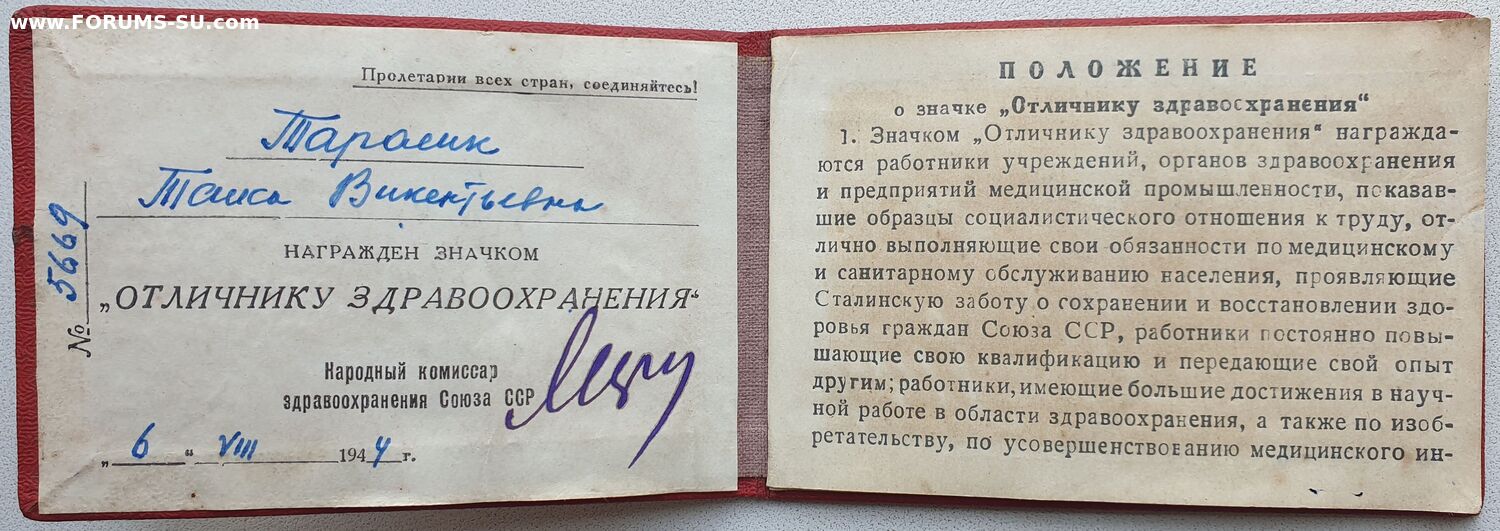 www.FORUMS-SU.com
Пролетарии всех стран, соединяйтесь!
Таисa Викентьевна
НАГРАЖДЕН ЗНАЧКОМ
„ОТЛИЧНИКУ ЗДРАВООХРАНЕНИЯ“
Народный комиссар
здравоохранения Союза ССР
„6“ VIII 1944 г.
№ 5669
ПОЛОЖЕНИЕ
о значке „Отличнику здравоохранения“
1. Значком „Отличнику здравоохранения“ награжда-
ются работники учреждений, органов здравоохранения
и предприятий медицинской промышленности, показав-
шие образцы социалистического отношения к труду, от-
лично выполняющие свои обязанности по медицинскому
и санитарному обслуживанию населения, проявляющие
Сталинскую заботу о сохранении и восстановлении здо-
ровья граждан Союза ССР, работники постоянно повы-
шающие свою квалификацию и передающие свой опыт
другим; работники, имеющие большие достижения в науч-
ной работе в области здравоохранения, а также по изоб-
ретательству, по усовершенствованию медицинского ин-